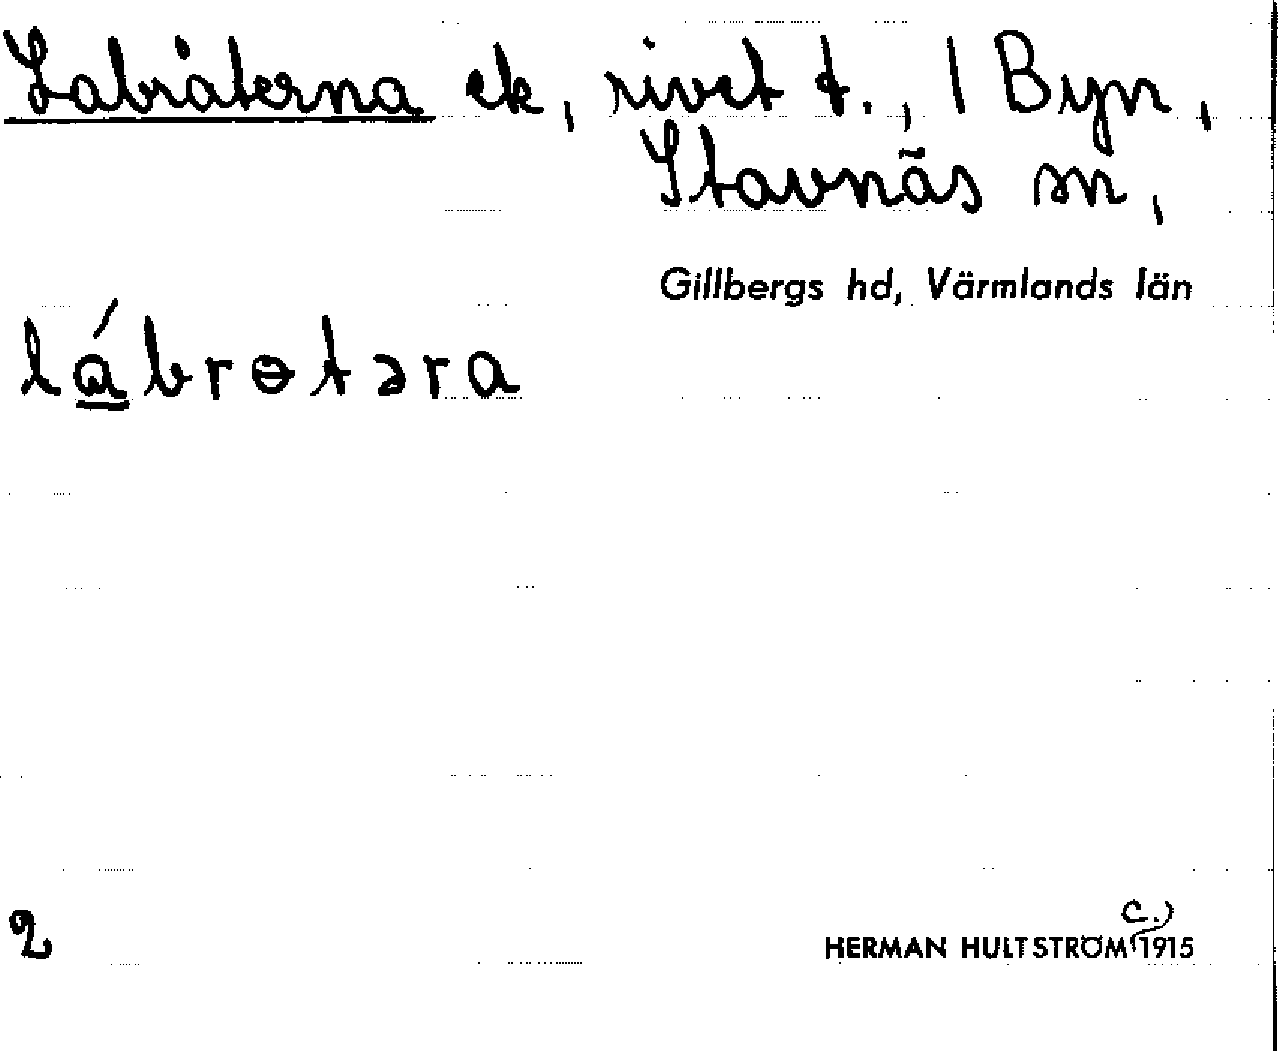 Labråterna ek, rivet t., 1 Byn,
Stavnäs sn,
Gillbergs hd, Värmlands län
lábrɵtəra
2
c.)
HERMAN HULTSTRÖM 1915